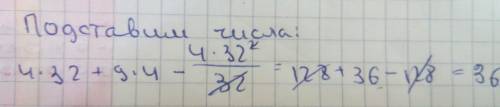 Подставим числа:
4·32 + 9·4 - 4·32²/32 = 128 + 36 - 128 = 36